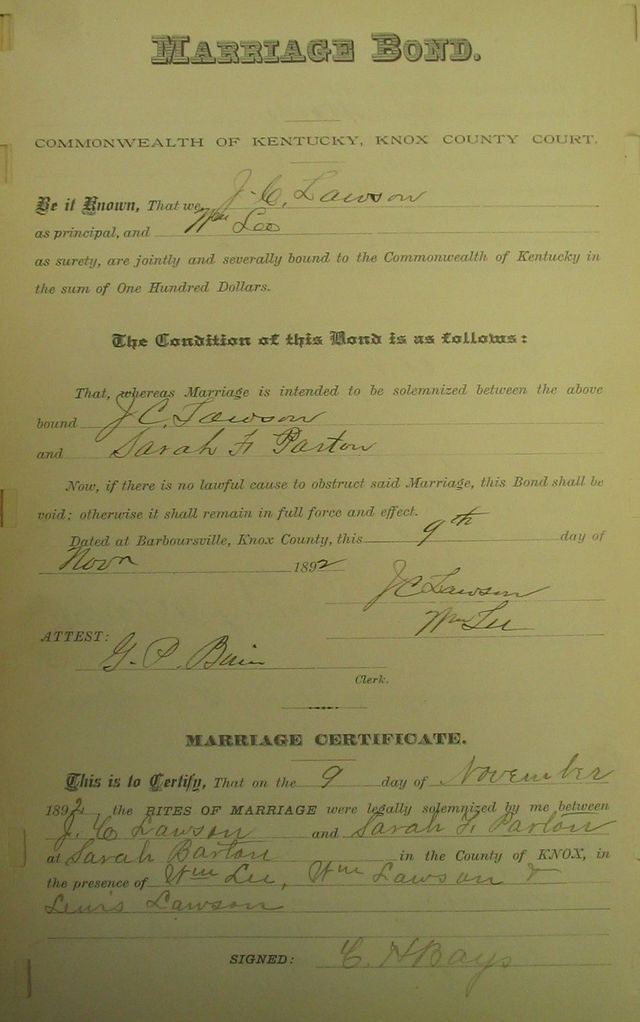 MARRIAGE BOND.
COMMONWEALTH OF KENTUCKY, KNOX COUNTY COURT.
Be it Known, That we, J. C. Lawson
as principal, and Wm Lee
as surety, are jointly and severally bound to the Commonwealth of Kentucky in
the sum of One Hundred Dollars.
The Condition of this Bond is as follows:
That, whereas Marriage is intended to be solemnized between the above
bound J C. Lawson
and Sarah F Parton
Now, if there is no lawful cause to obstruct said Marriage, this Bond shall be
void; otherwise it shall remain in full force and effect.
Dated at Barboursville, Knox County, this 9th day of
Novr 1892
J C Lawson
Wm Lee
ATTEST:
G. P. Bain
Clerk.
MARRIAGE CERTIFICATE.
This is to Certify, That on the 9 day of November
1892, the RITES OF MARRIAGE were legally solemnized by me between
J. C Lawson and Sarah F. Parton
at Sarah Barton in the County of KNOX, in
the presence of Wm Lee, Wm Lawson &
Lewis Lawson
SIGNED: C. H Bays